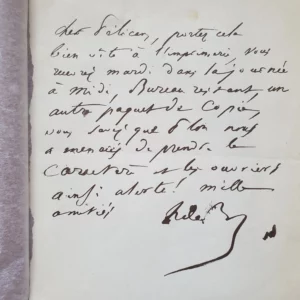 cher Pélican, portez cela
bien vite à l'imprimerie. Vous
aurez mardi dans la journée
à midi, Bureau restant, un
autre paquet de Copie,
vous savez que Plon nous
a menacés de prendre le
caractère et les ouvriers
ainsi alerte! mille
amitiés